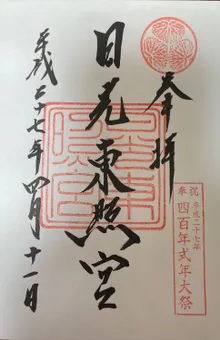 奉拝
日光東照宮
平成二十七年四月十一日
日光東照宮
奉祝
平成二十七年
四百年式年大祭